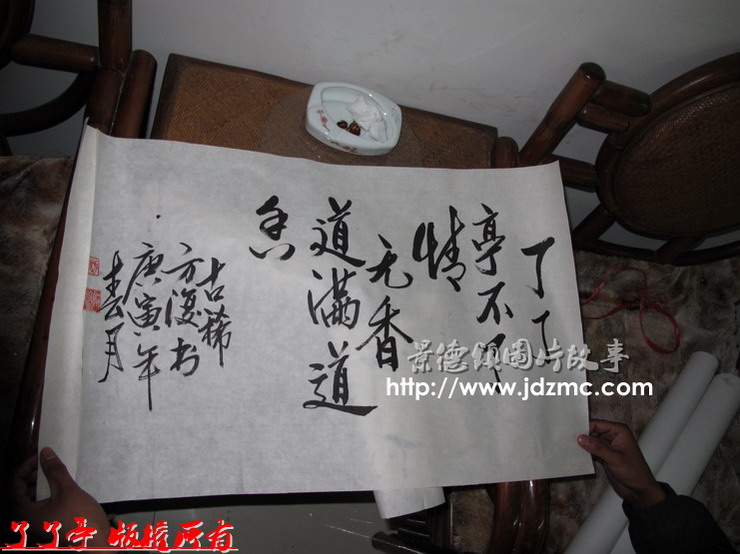 了了
亭不了
情
无香
道满道
香
古稀
方復书
庚寅年
春月
景德镇圖片故事
http://www.jdzmc.com
了了亭 版權所有